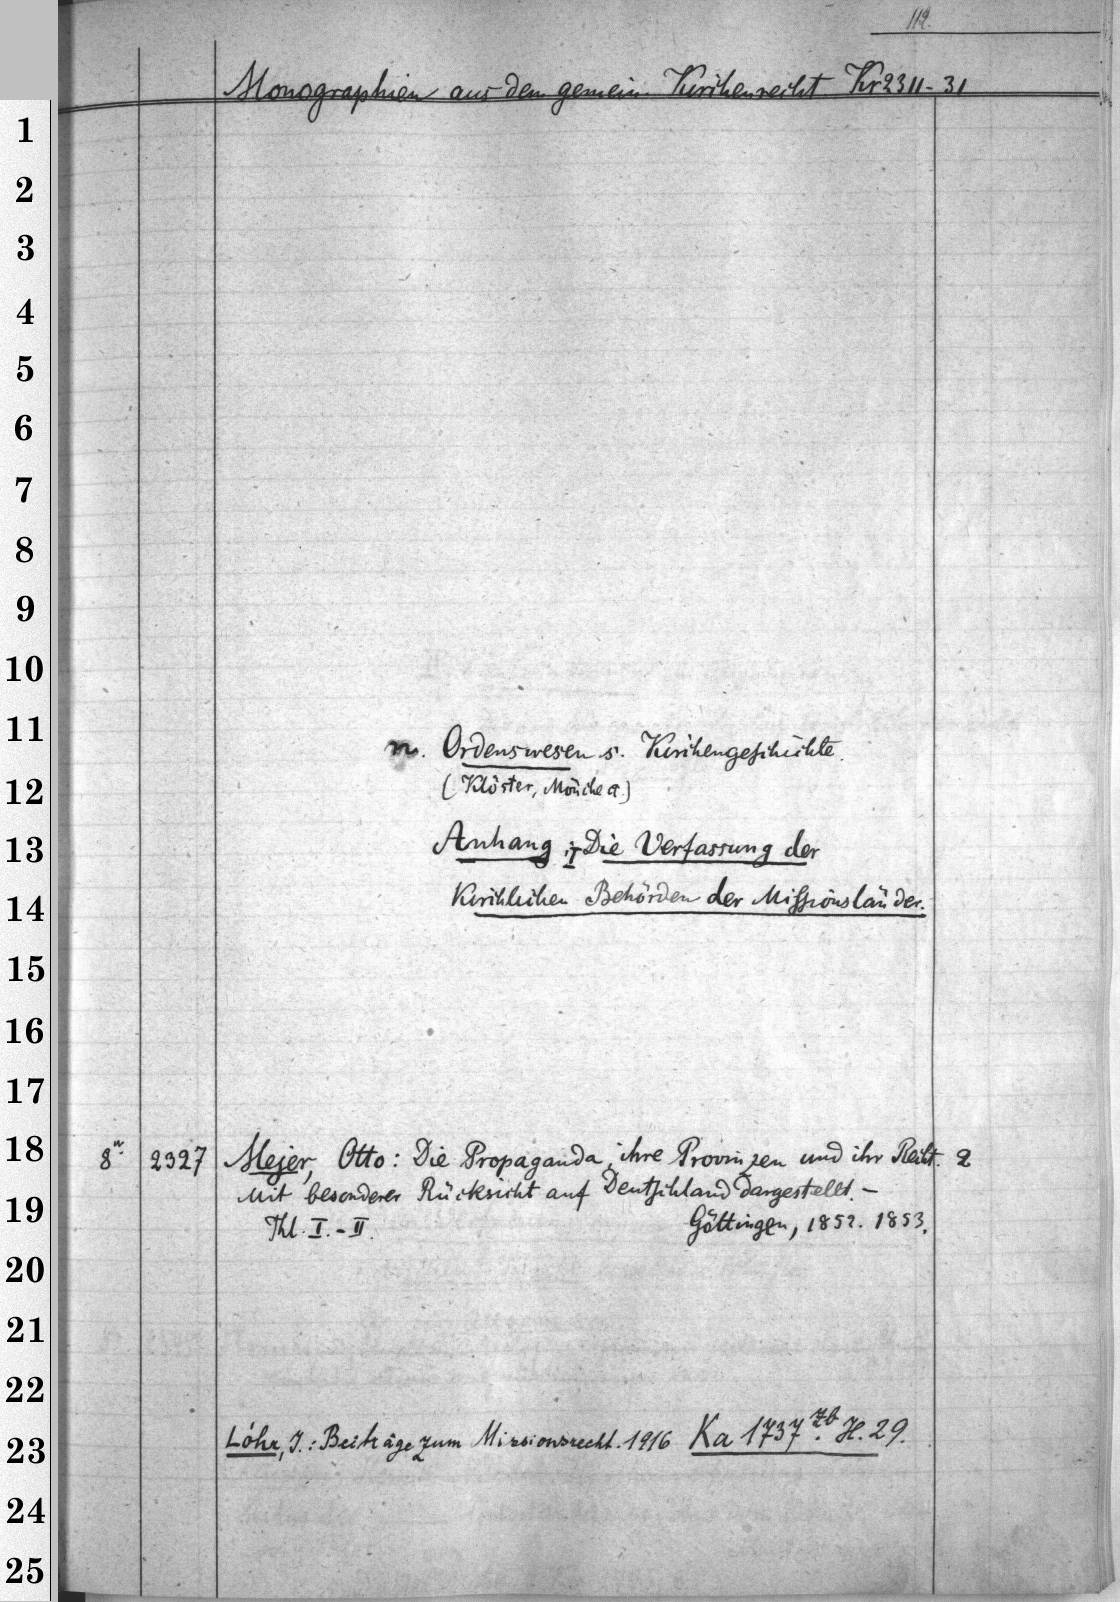 112.
Monographien aus dem gemein. Kirchenrecht Kr2311-31
1
2
3
4
5
6
7
8
9
10
11
n. Ordenswesen s. Kirchengeschichte.
12
(Klöster, Mönche a.)
13
Anhang I: Die Verfassung der
14
Kirchlichen Behörden der Missionsländer.
15
16
17
18
8° 2327 Mejer, Otto: Die Propaganda, ihre Provinzen und ihr Recht. 2
Mit besonderer Rücksicht auf Deutschland dargestellt. –
19
Thl. I.-II. Göttingen, 1852. 1853.
20
21
22
23
Löhr, J.: Beiträge zum Missionsrecht. 1916 Ka 1737 zb. H. 29.
24
25